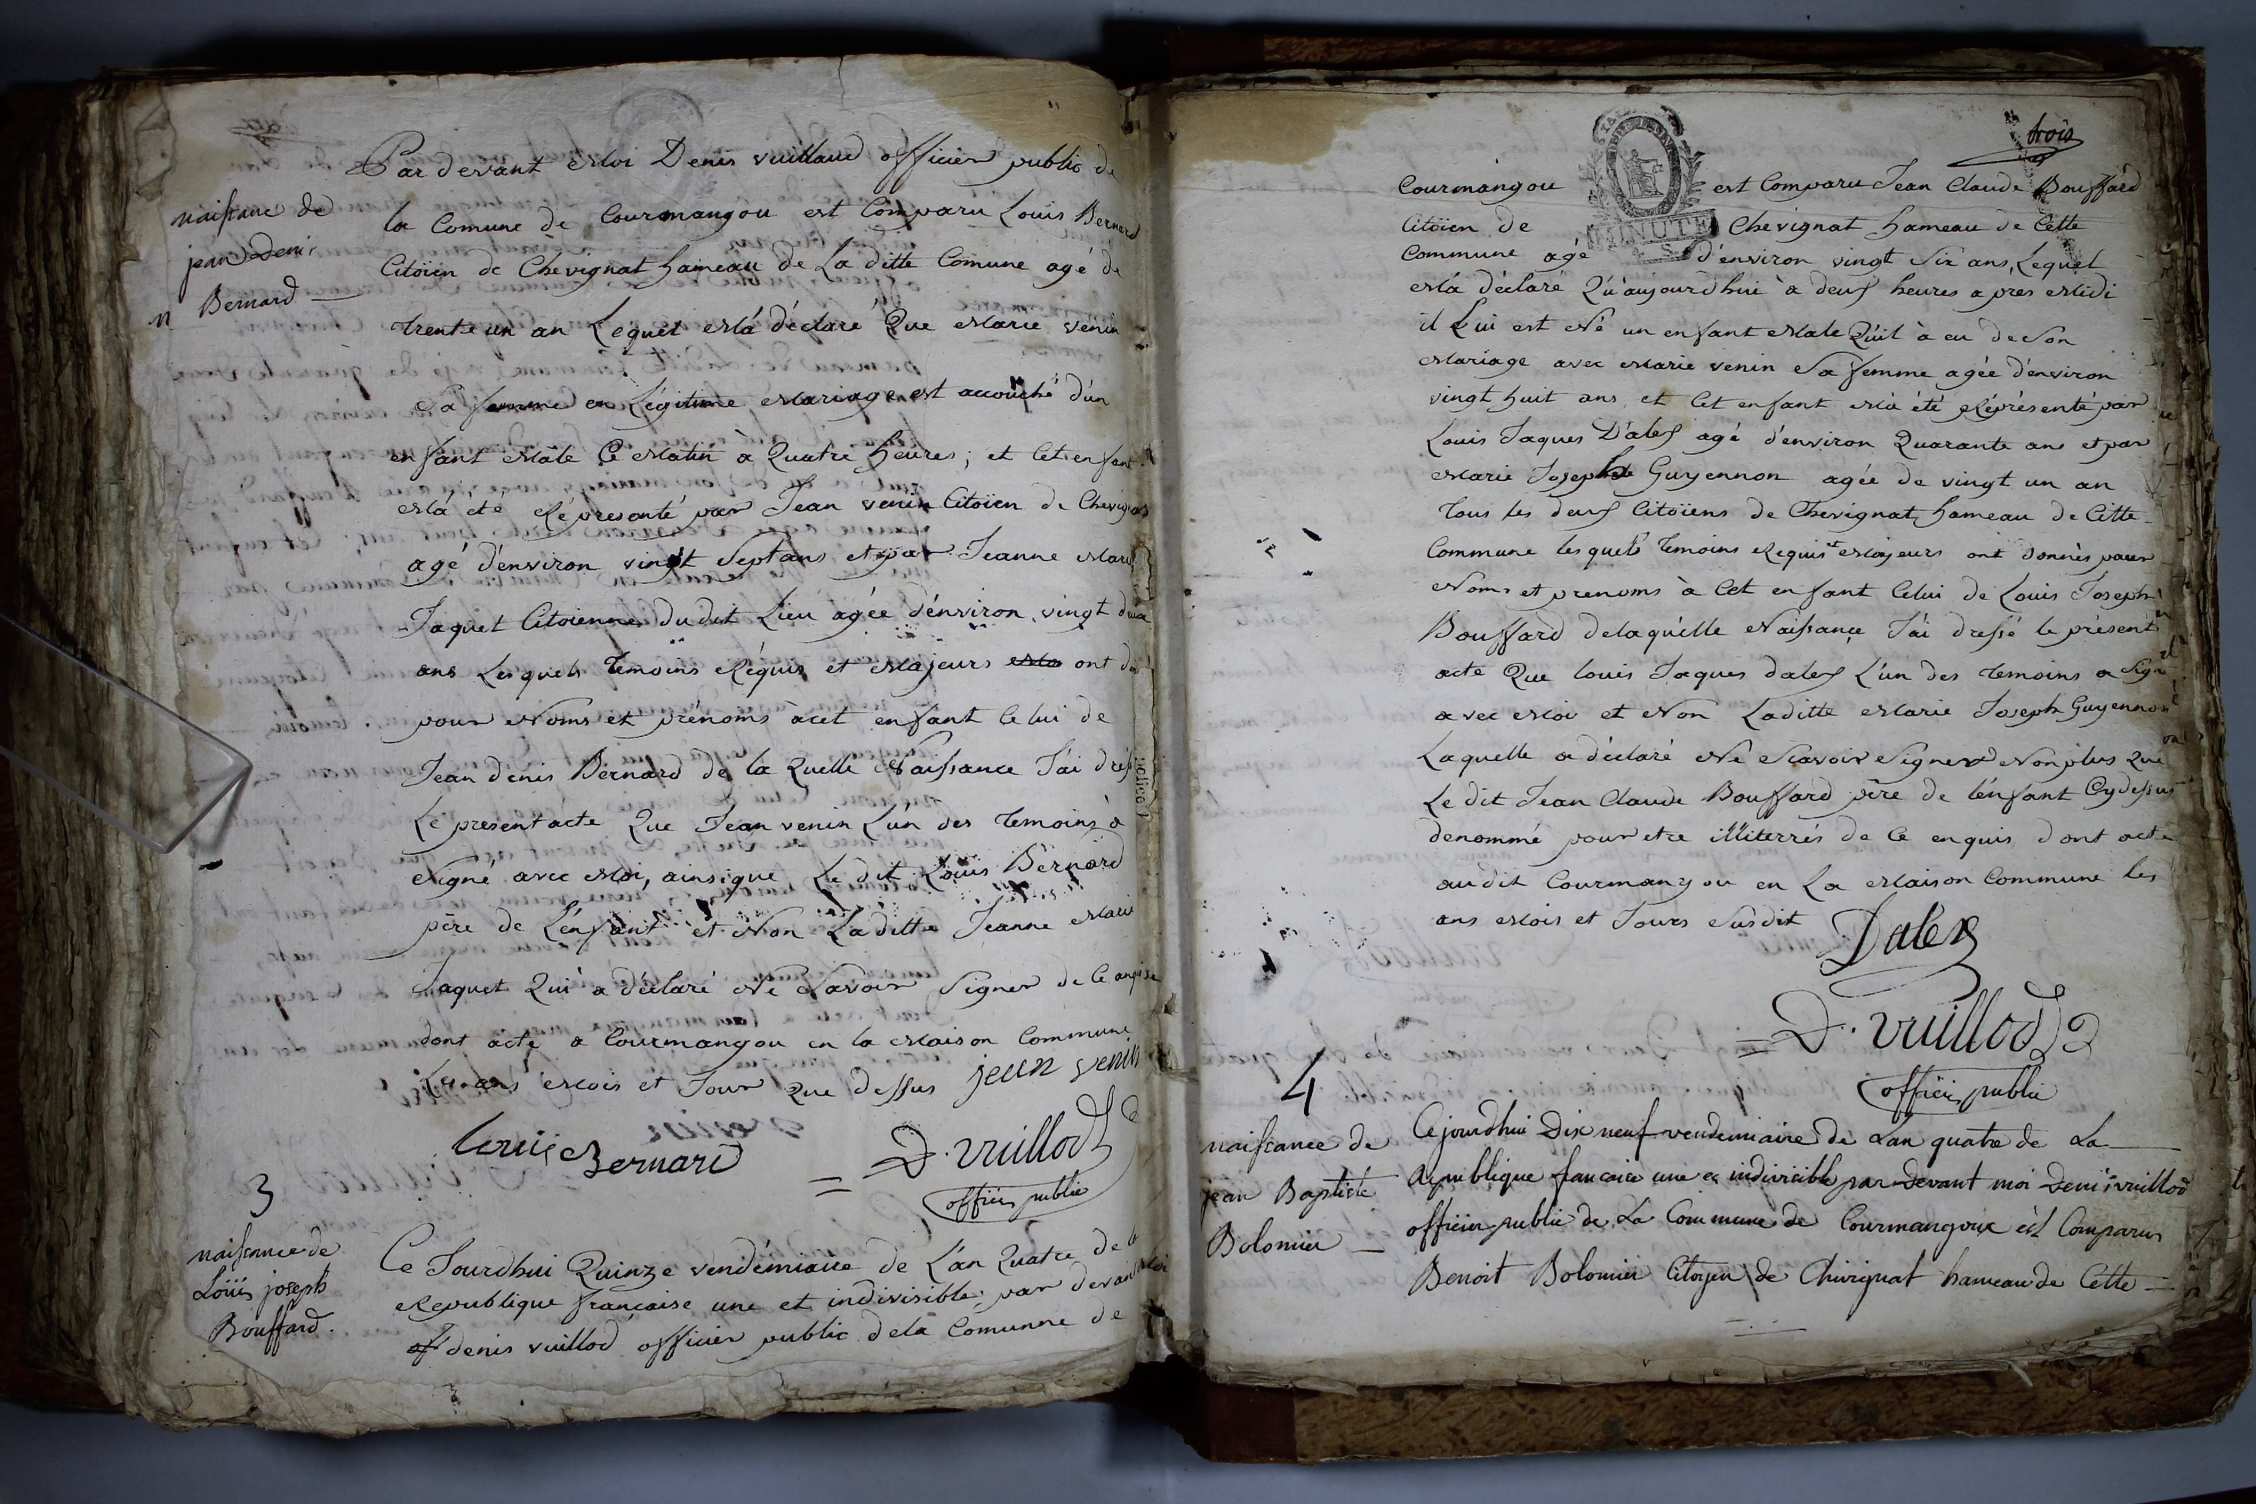 naissance de
jean Denis
Bernard
Par devant Moi Denis vuillaud officier public de
la Comune de Courmangou est Comparu Louis Bernard
Citoïen de Chevignat hameau de La ditte Comune agé de
trente un an Lequel M'a déclaré Que Marie venin
Sa femme en Légitime Mariage est accouché d'un
enfant Mâle Ce Matin à Quatre heures ; et Cet enfant
M'a été Réprésenté par Jean venin Citoïen de Chevignat
agé d'environ vingt Sept ans et par Jeanne Marie
Jaquet Citoïenne du dit Lieu agée d'environ vingt deux
ans Lesquels Temoins Réquis et Majeurs ont
pour Noms et prénoms à cet enfant Celui de
Jean denis Bernard de la Quelle Naissance J'ai
Le present acte Que Jean venin L'un des Temoins à
Signé avec Moi, ainsi que Le dit Louis Bernard
père de L'enfant et Non La ditte Jeanne Marie
Jaquet Qui a déclaré Ne Savoir Signer de Ce
dont acte a Courmangou en la Maison Commune
Les ans Mois et Jour que dessus jean venin
Louis Bernard
= D. vuillod
officier public
3
naissance de
Loüis joseph
Bouffard.
Ce Jourdhui Quinze vendémiaire de L'án Quatre de
Republique française une et indivisible par devant Moi
denis vuillod officier public dela Comunne de
trois
Courmangou est Comparu Jean Claude Bouffard
MINUTE
Citoïen de Chevignat hameau de Cette
Commune agé d'environ vingt Six ans, Lequel
M'a déclaré Qu'aujourdhui à deux heures apres Midi
il Lui est Né un enfant Male Qu'il à eu de Son
Mariage avec Marie venin Sa femme agée d'environ
vingt huit ans et Cet enfant M'a été Réprésenté par
Louis Jaques D'alex agé d'environ Quarante ans et par
Marie Joseph Guyennon agée de vingt un an
Tous les deux Citoïens de Chevignat, hameau de Cette
Commune lesquels Temoins Requis et Majeurs ont donnés pour
Noms et prenoms à Cet enfant Celui de Louis Joseph
Bouffard delaquelle Naissance J'ai dressé le présent
acte Que louis Jaques dalex L'un des Temoins a Signé
avec Moi et Non Laditte Marie Joseph Guyennon
Laquelle a déclaré Ne Scavoir Signer Non plus Que
Le dit Jean Claude Bouffard père de l'enfant Cydessus
denommé pour etre illiterrés de Ce enquis dont acte
audit Courmangou en La Maison Commune les
ans Mois et Jours Susdit
Dalex
= D. vuillod
officier public
4
naissance de
jean Baptiste
Bolomier
Cejourdhui Dix neuf vendemiaire de L'an quatre de La
Republique francaise une et indivisible par devant moi Denis vuillod
officier public de La Commune de Courmangoux est Comparu
Benoit Bolomier Citoyen de Chivignat hameau de Cette